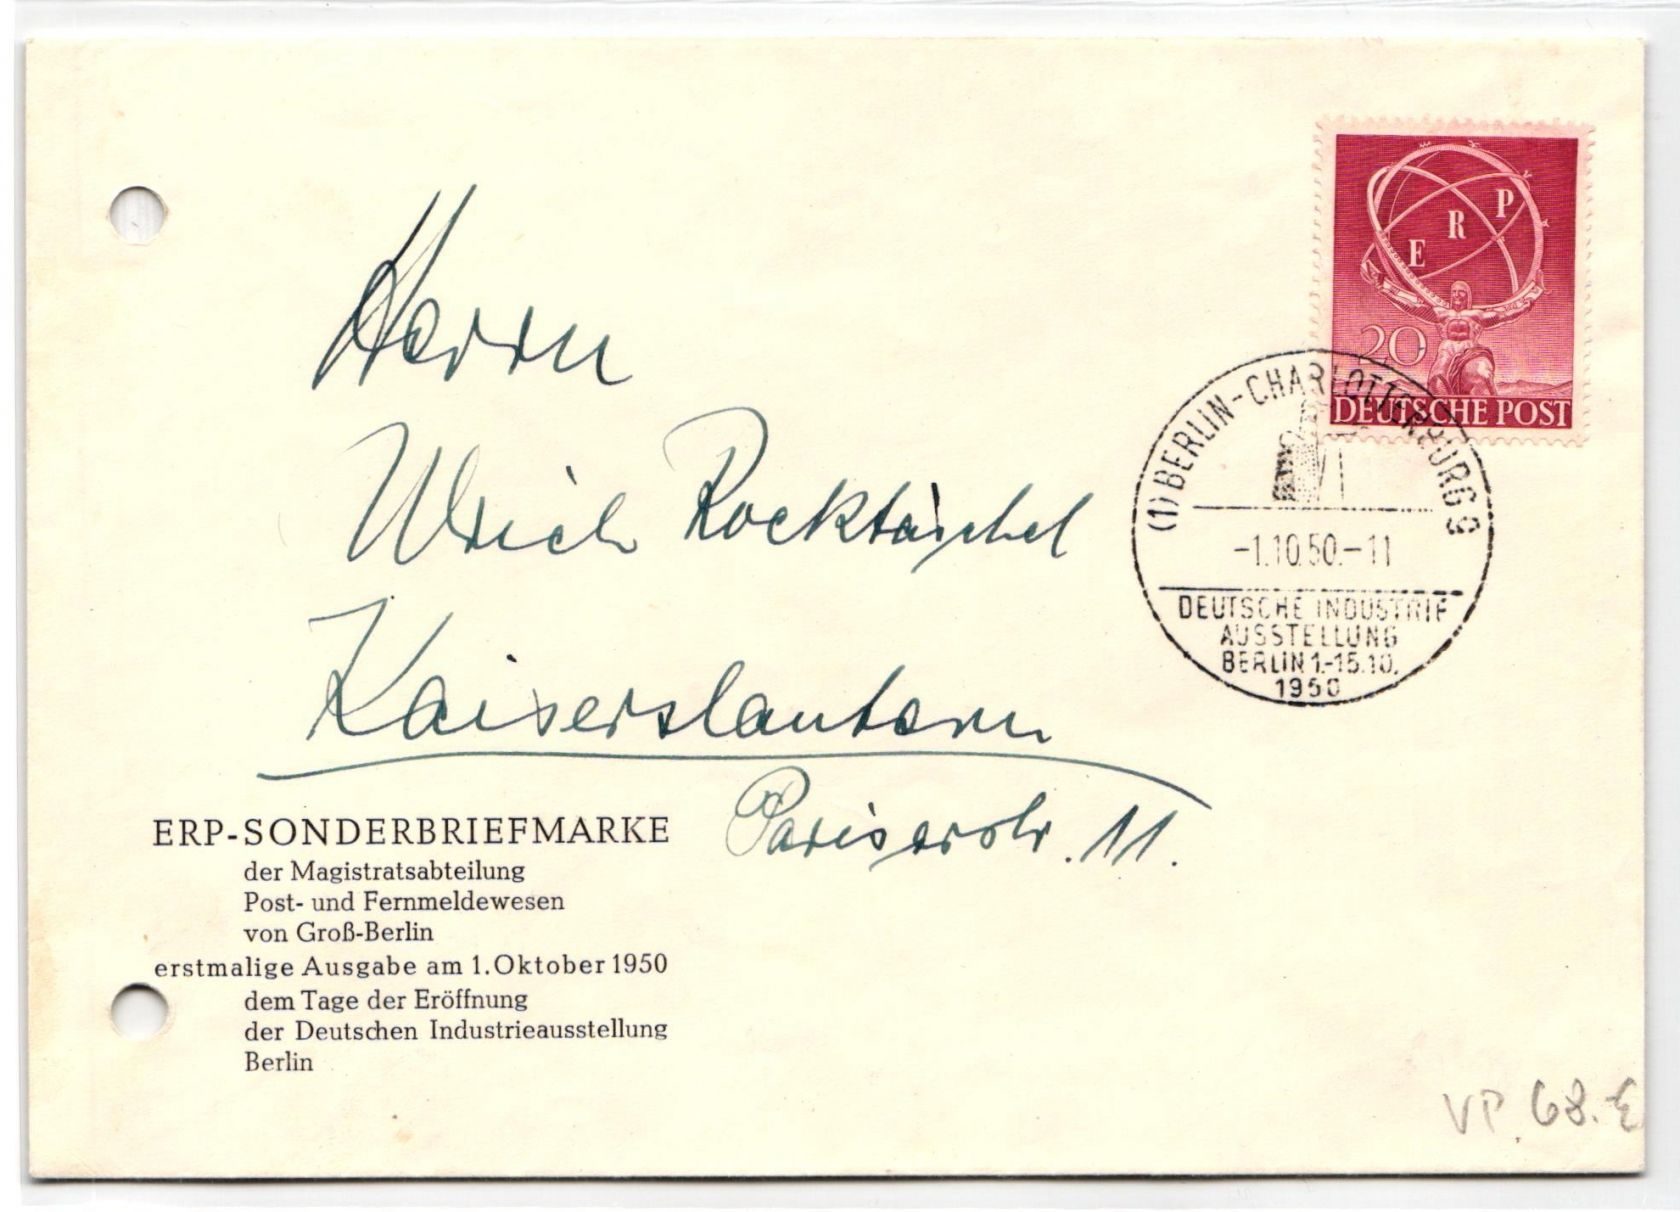 E R P
20
DEUTSCHE POST
(1) BERLIN-CHARLOTTENBURG 9
-1.10.50.-11
DEUTSCHE INDUSTRIE
AUSSTELLUNG
BERLIN 1.-15.10.
1950
Herrn
Ulrich Rocktäschel
Kaiserslautern
Pariserstr. 11.
ERP-SONDERBRIEFMARKE
der Magistratsabteilung
Post- und Fernmeldewesen
von Groß-Berlin
erstmalige Ausgabe am 1. Oktober 1950
dem Tage der Eröffnung
der Deutschen Industrieausstellung
Berlin
VP. 68.-€